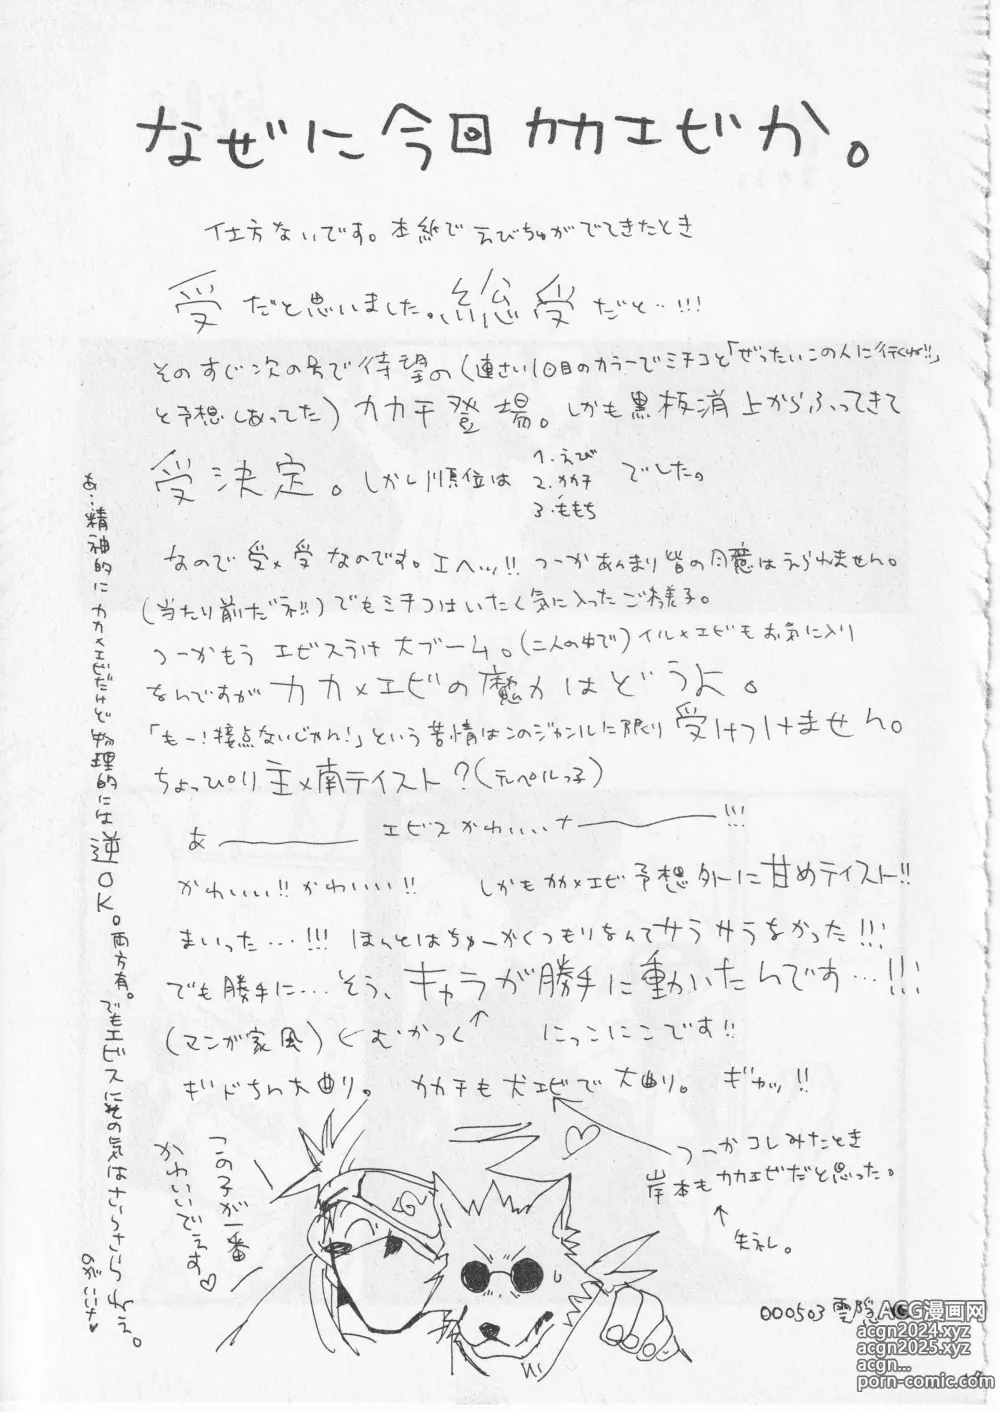 なぜに今回カカエビか。
仕方ないです。本紙でえびちゅがでてきたとき
受だと思いました。総受だと…!!!
そのすぐ次の号で待望の(連さい10回目のカラーでミチコと「ぜったいこの人に行くね!!」
と予想しあってた)カカチ登場。しかも黒板消上からふってきて
受決定。しかし順位は
1.えび
2.カカチ
3.ももち
でした。
なので受×受なのです。エヘッ!! つーかあんまり皆の同意はえられません。
(当たり前だネ!!)でもミチコはいたく気に入ったご様子。
つーかもう エビスうけ大ブーム。(二人の中で)イル×エビもお気に入り
なんですがカカ×エビの魔力はどうよ。
「もー!接点ないじゃん!」という苦情はこのジャンルに限り受けつけません。
ちょっぴり主×南テイスト?(デルペルっ子)
あ――― エビスかわいいナ―――!!!
かわいい!!かわいい!! しかもカカ×エビ予想外に甘めテイスト!!
まいった…!!! ほんとはちゅーかくつもりなんてサラサラなかった!!!
でも勝手に…そう、キャラが勝手に動いたんです…!!!
(マンガ家風)←むかつく にっこにこです!!
ギドちん大曲り。 カカチも犬エビで大曲り。 ギャッ!!
つーかコレみたとき
岸本もカカエビだと思った。
失礼。
この子が一番
かわいいでぇす♡
あ…精神的にカカ×エビだけど物理的には逆OK。両方有。でもエビスにその気はさらさらねぇ。
のがいいナ♥
000503 雲隠
ACG漫画网
acgn2024.xyz
acgn2025.xyz
acgn...
porn-comic.com